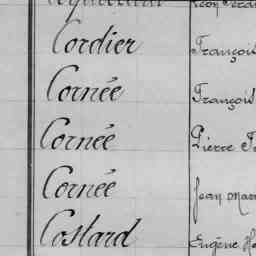 Cordier François
Cornée François
Cornée Pierre
Cornée Jean
Costard Eugène